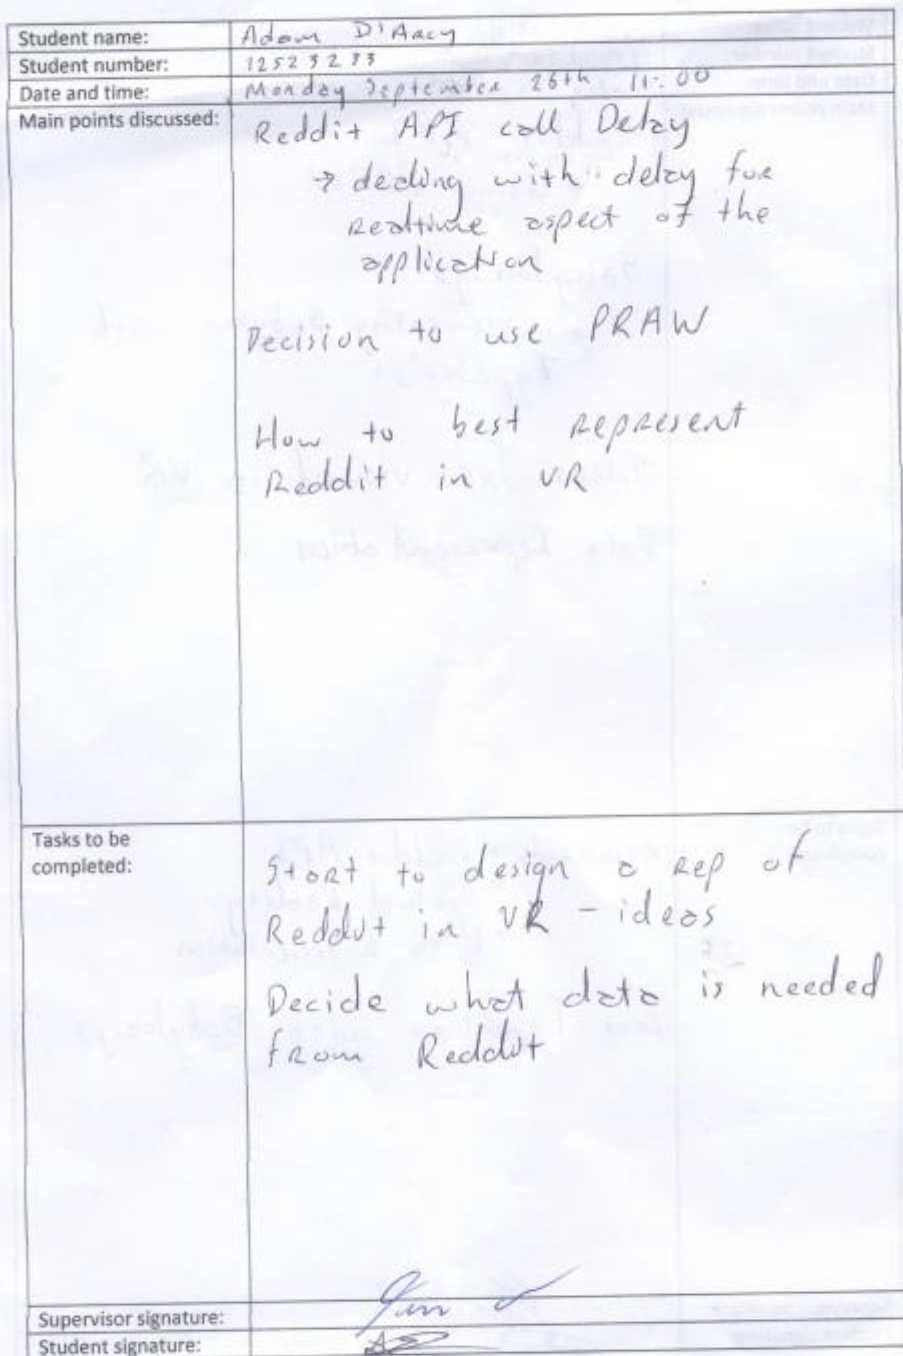 Student name: Adam D'Arcy
Student number: 12523233
Date and time: Monday September 26th 11:00
Main points discussed: Reddit API call Delay
→ dealing with delay for
realtime aspect of the
application
Decision to use PRAW
How to best represent
Reddit in VR
Tasks to be
completed:
Start to design a rep of
Reddit in VR - ideas
Decide what data is needed
from Reddit
Supervisor signature:
Student signature: